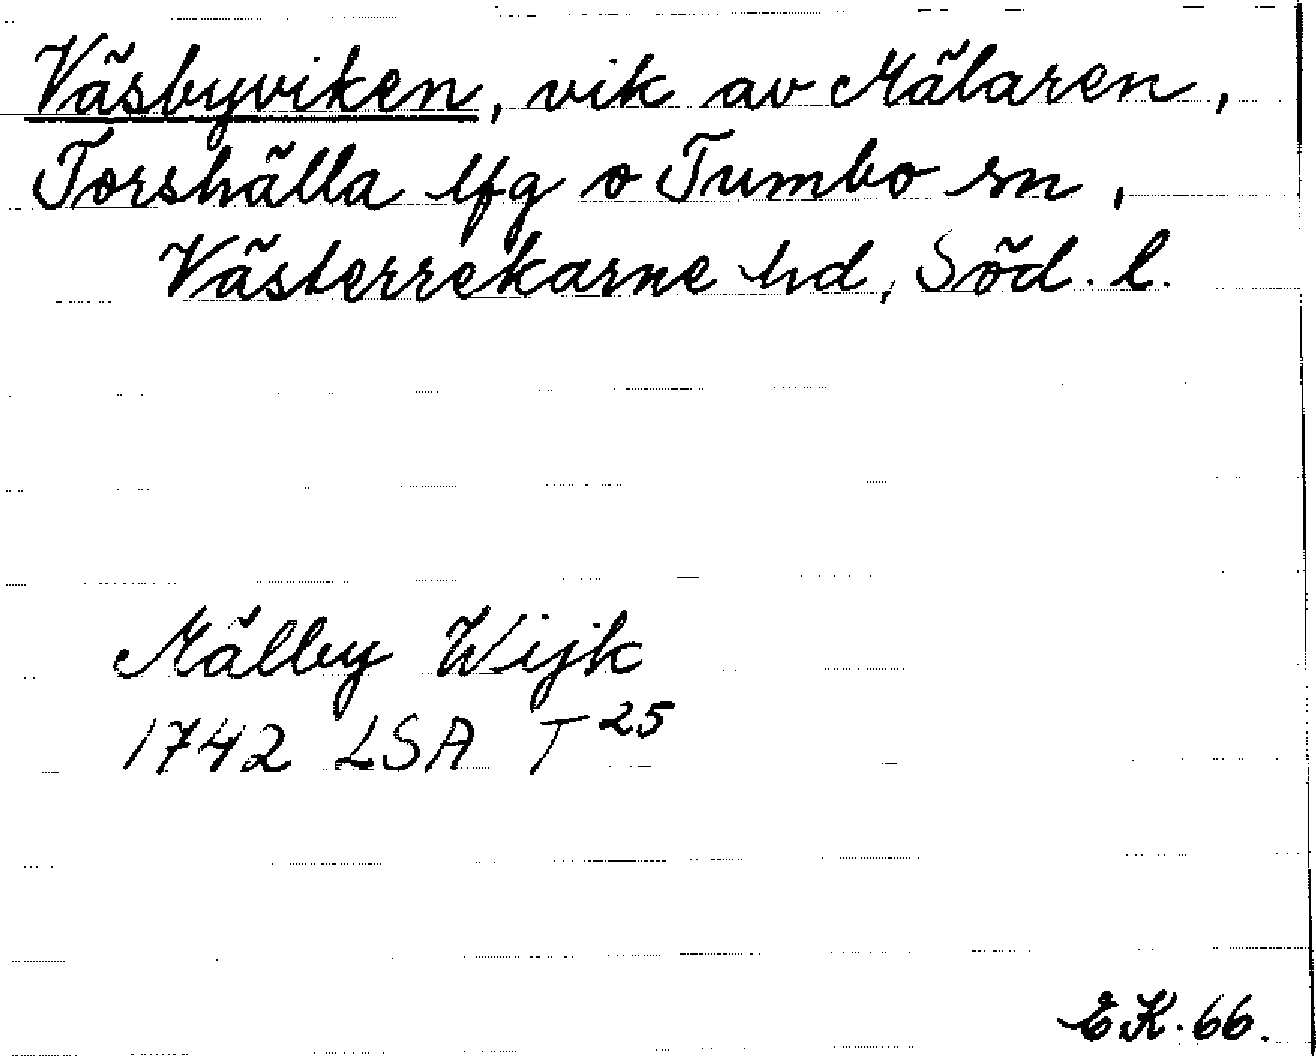 Väsbyviken, vik av Mälaren,
Torshälla lfg o Tumbo sn,
Västerrekarne hd, Söd. l.
Mälby Wijk
1742 LSA T 25
EK. 66.